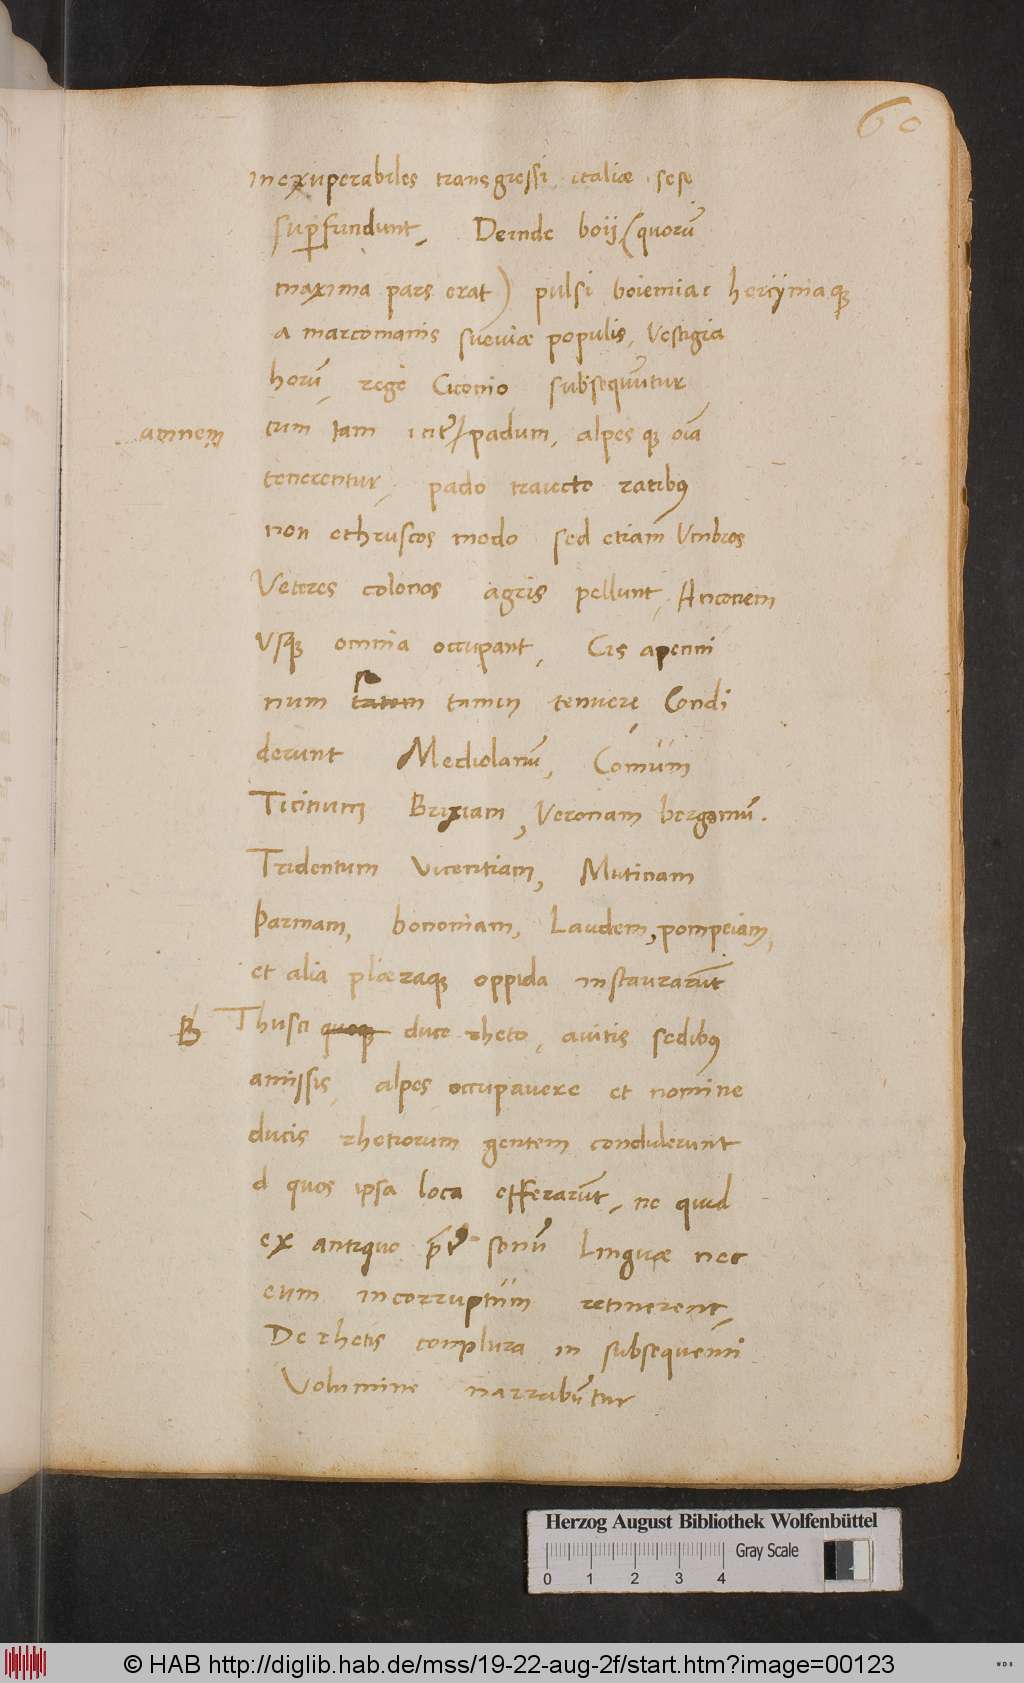 60
inexuperabiles transgressi, italiæ sese
suꝑfundunt, Deinde boij (quorū
maxima pars erat) pulsi boiemiae hercijniaqꝫ
a marcomanis sueuiæ populis, Vestigia
horū, rege Ciconio subsequūtur
amnem
cum iam inter padum, alpesqꝫ oīa
tenerentur, pado traiecto ratibꝰ
non ethruscos modo sed etiam Vmbros
Veteres colonos agris pellunt, Anconem
Vsqꝫ omnia occupant, Cis apenni
se
num tamen tenuere, Condi
derunt Mediolanū, Comum
Ticinum Brixiam, Veronam bergomū.
Tridentum Vicentiam, Mutinam
Parmam, bononiam, Laudem, pompeiam,
et alia plæraqꝫ oppida instaurarūt
B Thusci quoqꝫ duce rheto, auitis sedibꝰ
amissis, alpes occupauere et nomine
ducis rhetiorum gentem condiderunt
quos ipsa loca efferarūt, ne quid
ex antiquo p̄ter sonū Linguæ nec
eum incorruptum retinerent,
De rhetis complura in subsequenti
Volumine narrabūtur
Herzog August Bibliothek Wolfenbüttel
Gray Scale
0 1 2 3 4
© HAB http://diglib.hab.de/mss/19-22-aug-2f/start.htm?image=00123